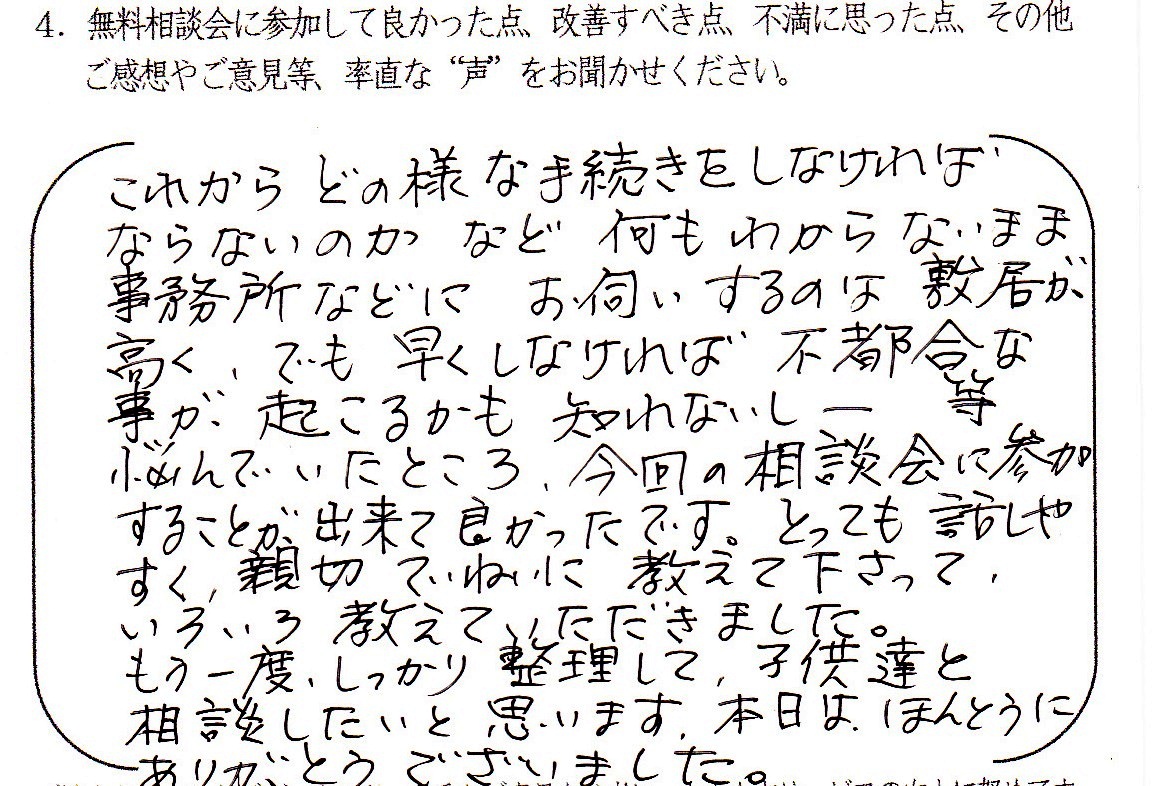 4. 無料相談会に参加して良かった点、改善すべき点、不満に思った点、その他
ご感想やご意見等、率直な“声”をお聞かせください。
これからどの様な手続きをしなければ
ならないのか など 何もわからないまま
事務所などに お伺いするのは 敷居が
高く、でも 早くしなければ 不都合な
事が起こるかも知れないしー 等
悩んでいたところ、今回の相談会に参加
することが出来て良かったです。とっても話しや
すく、親切ていねいに 教えて下さって、
いろいろ 教えていただきました。
もう一度、しっかり整理して、子供達と
相談したいと思います。本日は、ほんとうに
ありがとうございました。